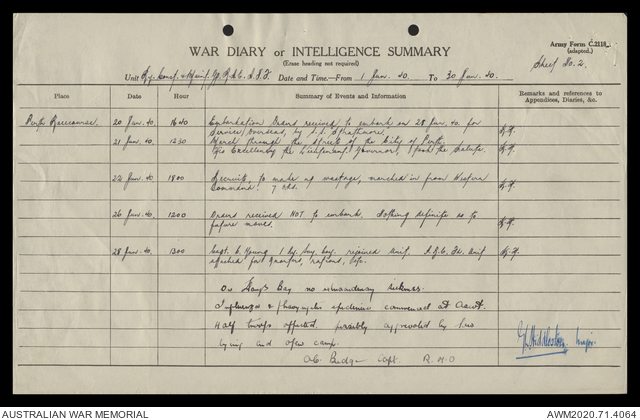 Army Form C.2118.
(adapted.)
WAR DIARY or INTELLIGENCE SUMMARY
(Erase heading not required)
Sheet No. 2.
Unit A.I.F. Date and Time—From 1 Jun. 40. To 30 Jun. 40.
Place Date Hour Summary of Events and Information Remarks and references to Appendices, Diaries, &c.
Perth 20 Jun. 40. 1640 Embarkation Orders received to embark on 28 Jun. 40. for
Service overseas, by S.S. Strathmore.
21 Jun. 40. 1230 March through the Streets of the City of Perth.
His Excellency the Lieutenant Governor, took the Salute.
22 Jun. 40. 1800 Recruits, to make up wastage, marched in from Western
Command. 7 ORs.
26 Jun. 40. 1200 Orders received NOT to embark. Nothing definite as to
future moves.
28 Jun. 40. 1300 Capt. Young rejoined Unit. Unit
attached for rations, etc.
no extraordinary sickness.
Influenza & epidemic commenced at
Half troops affected. possibly aggravated by
lying and open camp.
Capt. R.M.O
Middleton Major.
AUSTRALIAN WAR MEMORIAL
AWM2020.71.4064